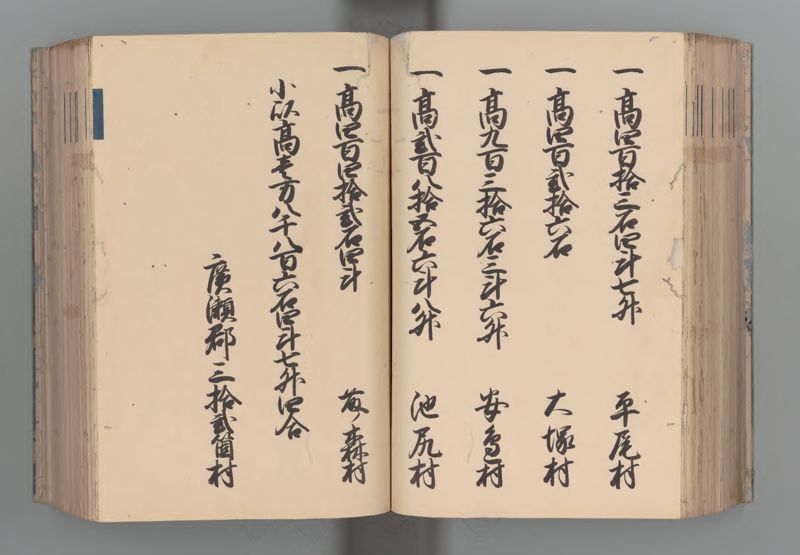 一 高四百拾三石四斗七升 平尾村
一 高四百弐拾六石 大塚村
一 高九百三拾六石三斗六升 安部村
一 高弐百八拾五石六斗八升 池尻村
一 高四百四拾弐石四斗 萱森村
小以高壱万八千八百六石四斗七升四合
廣瀬郡三拾弐箇村